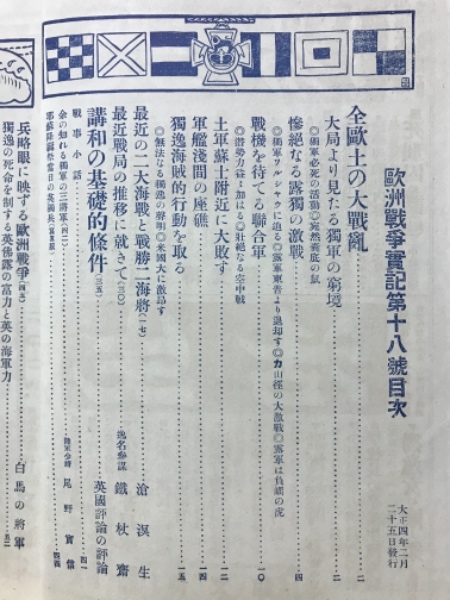 歐洲戰爭實記第十八號目次
大正四年二月
二十五日發行
全歐土の大戰亂……二
大局より見たる獨軍の窮境……二
◎獨軍必死の活動◎宛然嚢底の鼠
慘絶なる露獨の激戰……四
◎獨軍ワルシャウに迫る◎露軍東普より退却す◎カ山徑の大激戰◎露軍は負嵎の虎
戰機を待てる聯合軍……一〇
◎潜勢力益々加はる◎壯絶なる空中戰
土軍蘇士附近に大敗す……一二
軍艦淺間の坐礁……一四
獨逸海賊的行動を取る……一五
◎無法なる獨逸の聲明◎米國大に激昂す
最近の二大海戰と戰勝二海將(一七)……滄溟生
最近戰局の推移に就きて(三〇)……逸名參謀 鐵杖齋
講和の基礎的條件(三五)……英國評論の評論
戰事小話……四一
余の知れる獨軍の三將軍(四二)……陸軍少將 尾野實信
耶蘇降誕祭當日の英獨兵……四四
兵略眼に映ずる歐洲戰爭(四五)……白馬の將軍
獨逸の死命を制する英佛露の富力と英の海軍力……五二